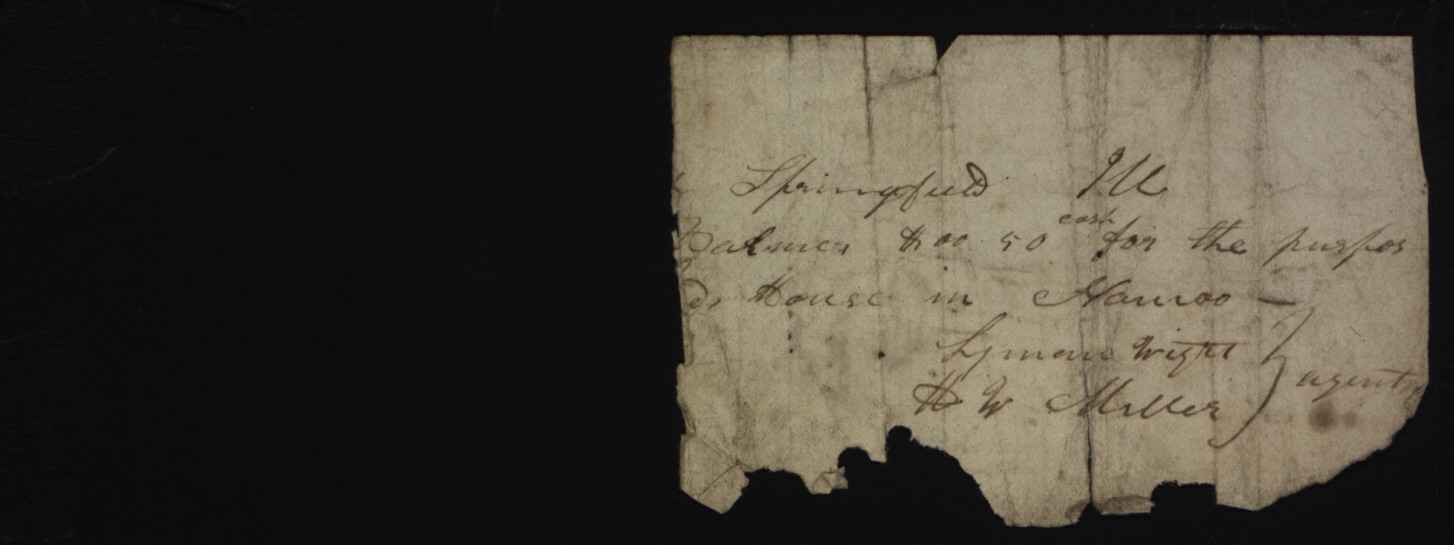 Springfield Ill
Balmer $00 50 cash for the purpos
ds House in Nauvoo —
Lyman Wight
H W Miller } agents